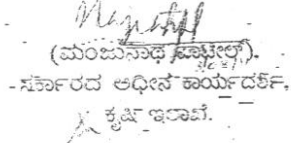 (ಮಂಜುನಾಥ ಪಾಟೀಲ್).
ಸರ್ಕಾರದ ಅಧೀನ ಕಾರ್ಯದರ್ಶಿ,
ಕೃಷಿ ಇಲಾಖೆ.